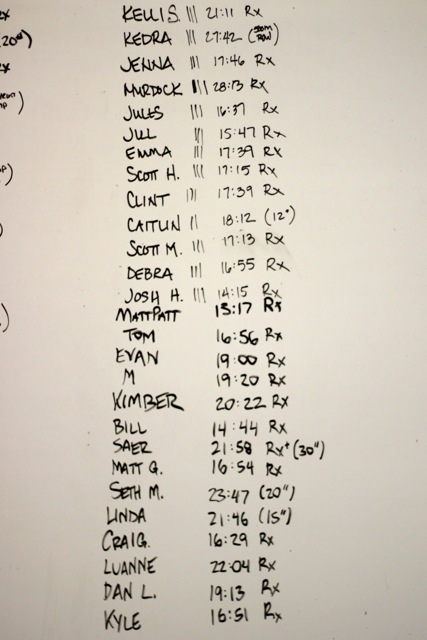 Rx
KELLI S. ||| 21:11 Rx
20") KEDRA ||| 27:42 (30m ROW)
Rx JENNA ||| 17:46 Rx
MURDOCK ||| 28:13 Rx
JULES ||| 16:37 Rx
JILL ||| 15:47 Rx
EMMA ||| 17:39 Rx
SCOTT H. ||| 17:15 Rx
CLINT ||| 17:39 Rx
CAITLIN || 18:12 (12")
SCOTT M. ||| 17:13 Rx
DEBRA ||| 16:55 Rx
JOSH H. ||| 14:15 Rx
MATT PATT 13:17 Rx
TOM 16:56 Rx
EVAN 19:00 Rx
M 19:20 Rx
KIMBER 20:22 Rx
BILL 14:44 Rx
SAER 21:58 Rx+ (30")
MATT G. 16:54 Rx
SETH M. 23:47 (20")
LINDA 21:46 (15")
CRAIG. 16:29 Rx
LUANNE 22:04 Rx
DAN L. 19:13 Rx
KYLE 16:51 Rx